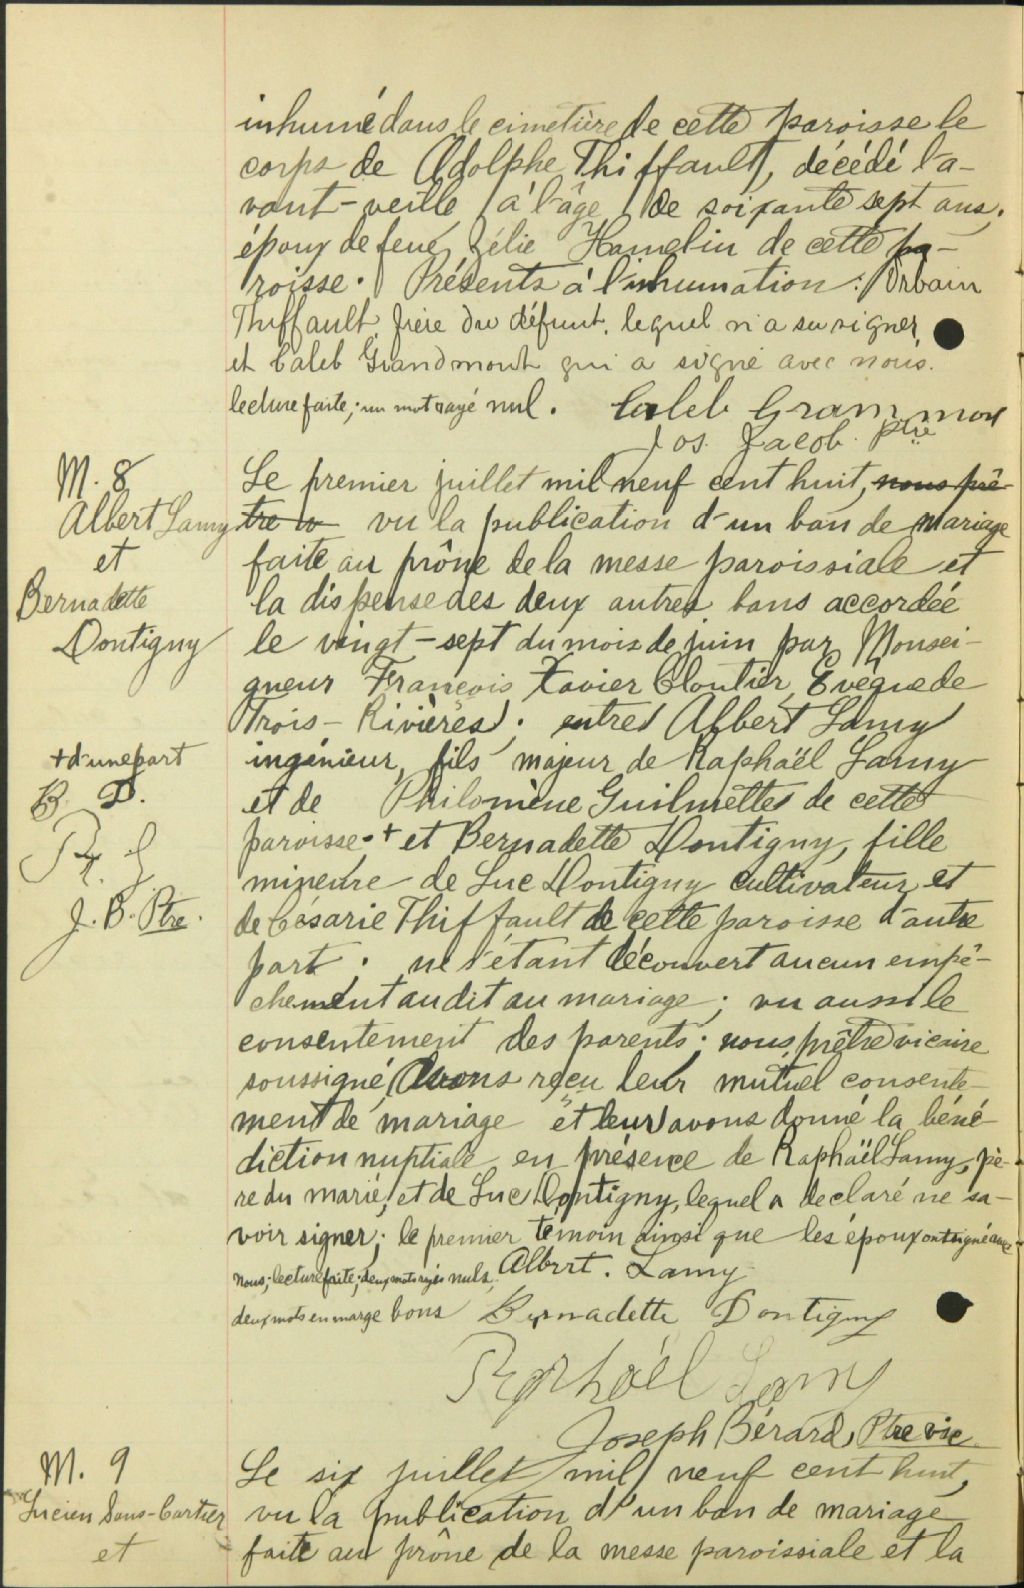 inhumé dans le cimetière de cette paroisse le
corps de Adolphe Thiffault, décédé l'a-
vant-veille à l'âge de soixante sept ans,
époux de feue Zélie Hamelin de cette pa-
roisse. Présents à l'inhumation: Urbain
Thiffault, frère du défunt, lequel n'a su signer,
et Caleb Grandmont qui a signé avec nous.
lecture faite; un mot rayé nul. Caleb Grammon
Jos. Jacob. Ptre
M. 8
Albert Lamy
et
Bernadette
Dontigny
Le premier juillet mil neuf cent huit, nous prê-
tre v vu la publication d'un ban de mariage
faite au prône de la messe paroissiale et
la dispense des deux autres bans accordée
le vingt-sept du mois de juin par Monsei-
gneur François Xavier Cloutier, Evêque de
Trois-Rivières; entre Albert Lamy
ingénieur, fils majeur de Raphaël Lamy
et de Philomène Guilmette de cette
paroisse + et Bernadette Dontigny, fille
mineure de Luc Dontigny cultivateur et
de Césarie Thiffault de cette paroisse d'autre
part; ne s'étant découvert aucun empê-
chement au dit au mariage; vu aussi le
consentement des parents; nous, prêtre vicaire
soussigné, avons reçu leur mutuel consente-
ment de mariage et leur avons donné la béné-
diction nuptiale en présence de Raphaël Lamy, pè-
re du marié, et de Luc Dontigny, lequel a declaré ne sa-
voir signer; le premier témoin ainsi que les époux ont signé avec
nous; lecture faite; deux mots rayés nuls,
deux mots en marge bons
+ d'une part
B. D.
R. L
J. B. Ptre.
Albert. Lamy
Bernadette Dontigny
Raphaël Lamy
Joseph Bérard, Ptre vic.
M. 9
Lucien Sans-Cartier
et
Le six juillet mil neuf cent huit,
vu la publication d'un ban de mariage
faite au prône de la messe paroissiale et la